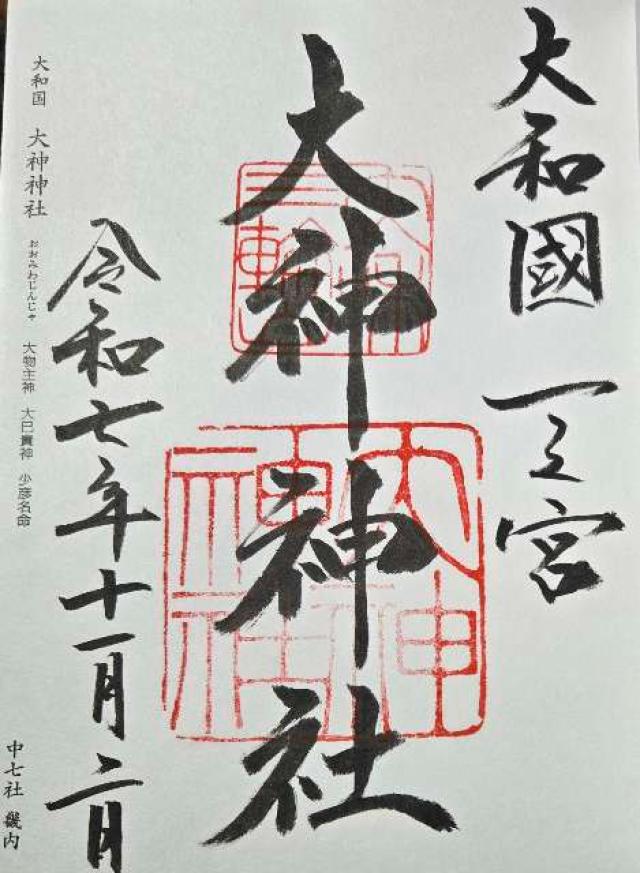 大和國 一之宮
大神神社
令和七年十一月二日
大和国 大神神社 おおみわじんじゃ 大物主神 大己貴神 少彦名命
中七社 畿内
大神神社